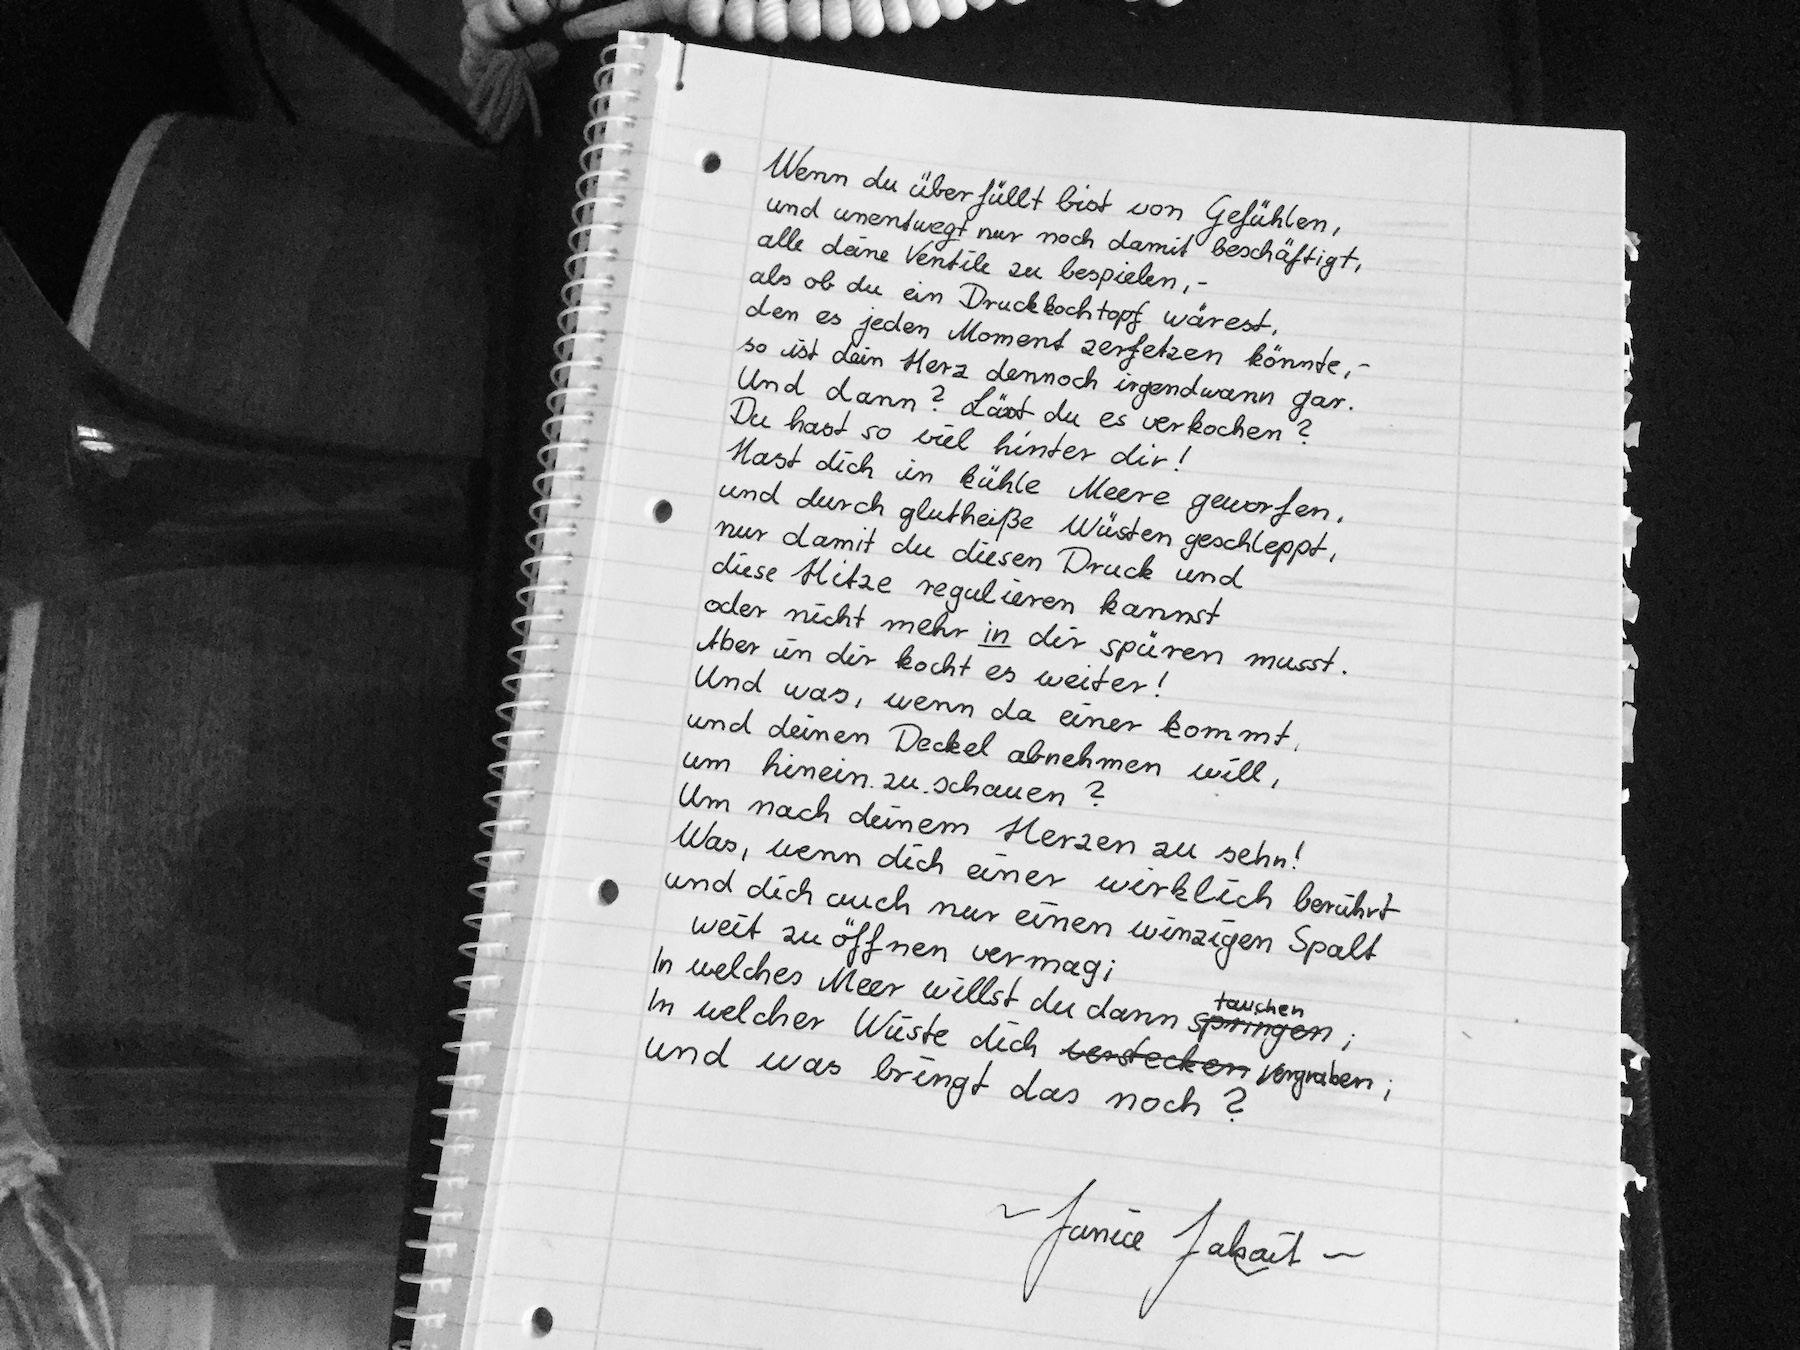 Wenn du überfüllt bist von Gefühlen,
und unentwegt nur noch damit beschäftigt,
alle deine Ventile zu bespielen,-
als ob du ein Druckkochtopf wärest,
den es jeden Moment zerfetzen könnte,-
so ist dein Herz dennoch irgendwann gar.
Und dann? Lässt du es verkochen?
Du hast so viel hinter dir!
Hast dich in kühle Meere geworfen,
und durch glutheiße Wüsten geschleppt,
nur damit du diesen Druck und
diese Hitze regulieren kannst
oder nicht mehr in dir spüren musst.
Aber in dir kocht es weiter!
Und was, wenn da einer kommt,
und deinen Deckel abnehmen will,
um hinein zu schauen?
Um nach deinem Herzen zu sehn!
Was, wenn dich einer wirklich berührt
und dich auch nur einen winzigen Spalt
weit zu öffnen vermag;
In welches Meer willst du dann springen tauchen;
In welcher Wüste dich verstecken vergraben;
und was bringt das noch?
~ Janice Jakait ~